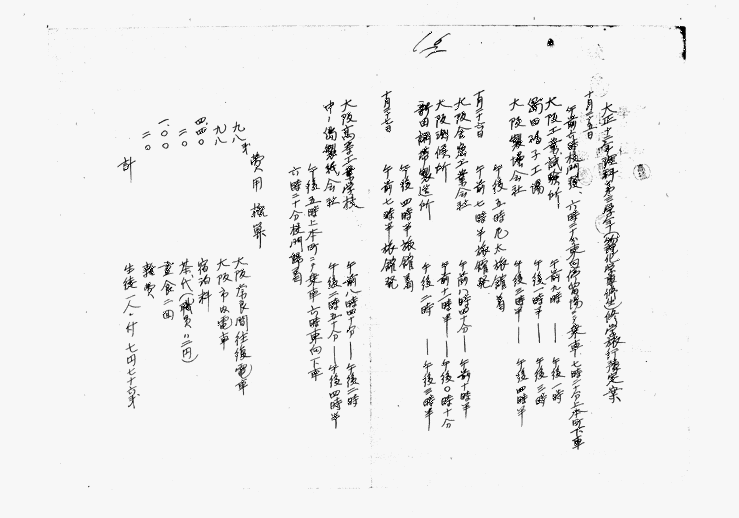 大正十二年理科第三学年(物理化学専修)修学旅行予定案
十月二十五日
午前六時校門発 六時二十分東向停留場ニテ乗車七時二十分上本町下車
大阪工業試験所 午前九時——午後一時
硝子工場 午後一時半——午後二時
大阪製煉会社 午後三時——午後四時半
午後五時 旅館着
十月二十六日 午前七時半旅館発
大阪合密工業会社 午前八時四十分——午前十時半
大阪測候所 午前十一時半——午後〇時十分
新田調帯製造所 午後二時——午後三時半
午後四時半旅館着
十月二十七日 午前七時半旅館発
大阪高等工業学校 午前八時四十分——午後二時
中ノ島製紙会社 午後二時五十分——午後四時半
午後五時上本町ニテ乗車六時東向下車
六時二十分校門帰着
費用概算
大阪奈良間往復電車 九八銭
大阪市内電車 九八
宿泊料 四四〇
茶代(職員ハ二円) 二〇
昼食二回 一〇〇
雑費 二〇
計 生徒一人ニ付 七円七十六銭